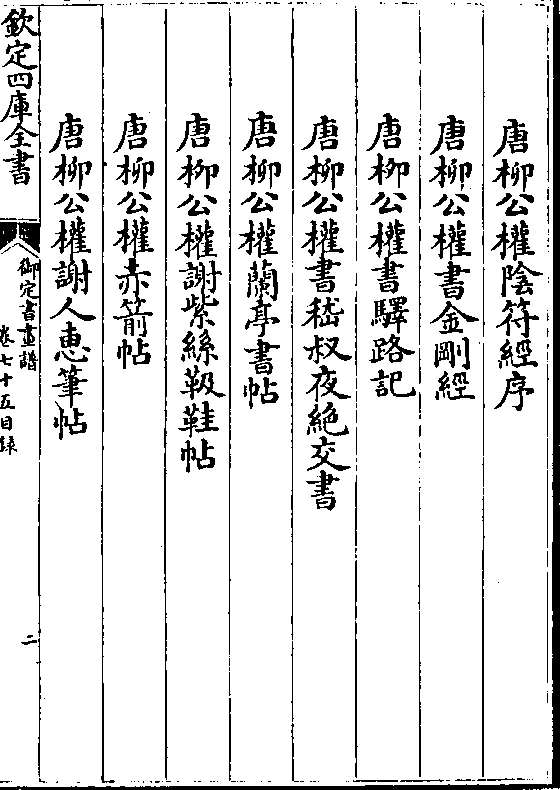 唐柳公權陰符經序
唐柳公權書金剛經
唐柳公權書驛路記
唐柳公權書嵇叔夜絶交書
唐柳公權蘭亭書帖
唐柳公權謝紫絲靸鞋帖
唐柳公權赤箭帖
唐柳公權謝人惠筆帖
欽定四庫全書
御定書畫譜
卷七十五目録
二